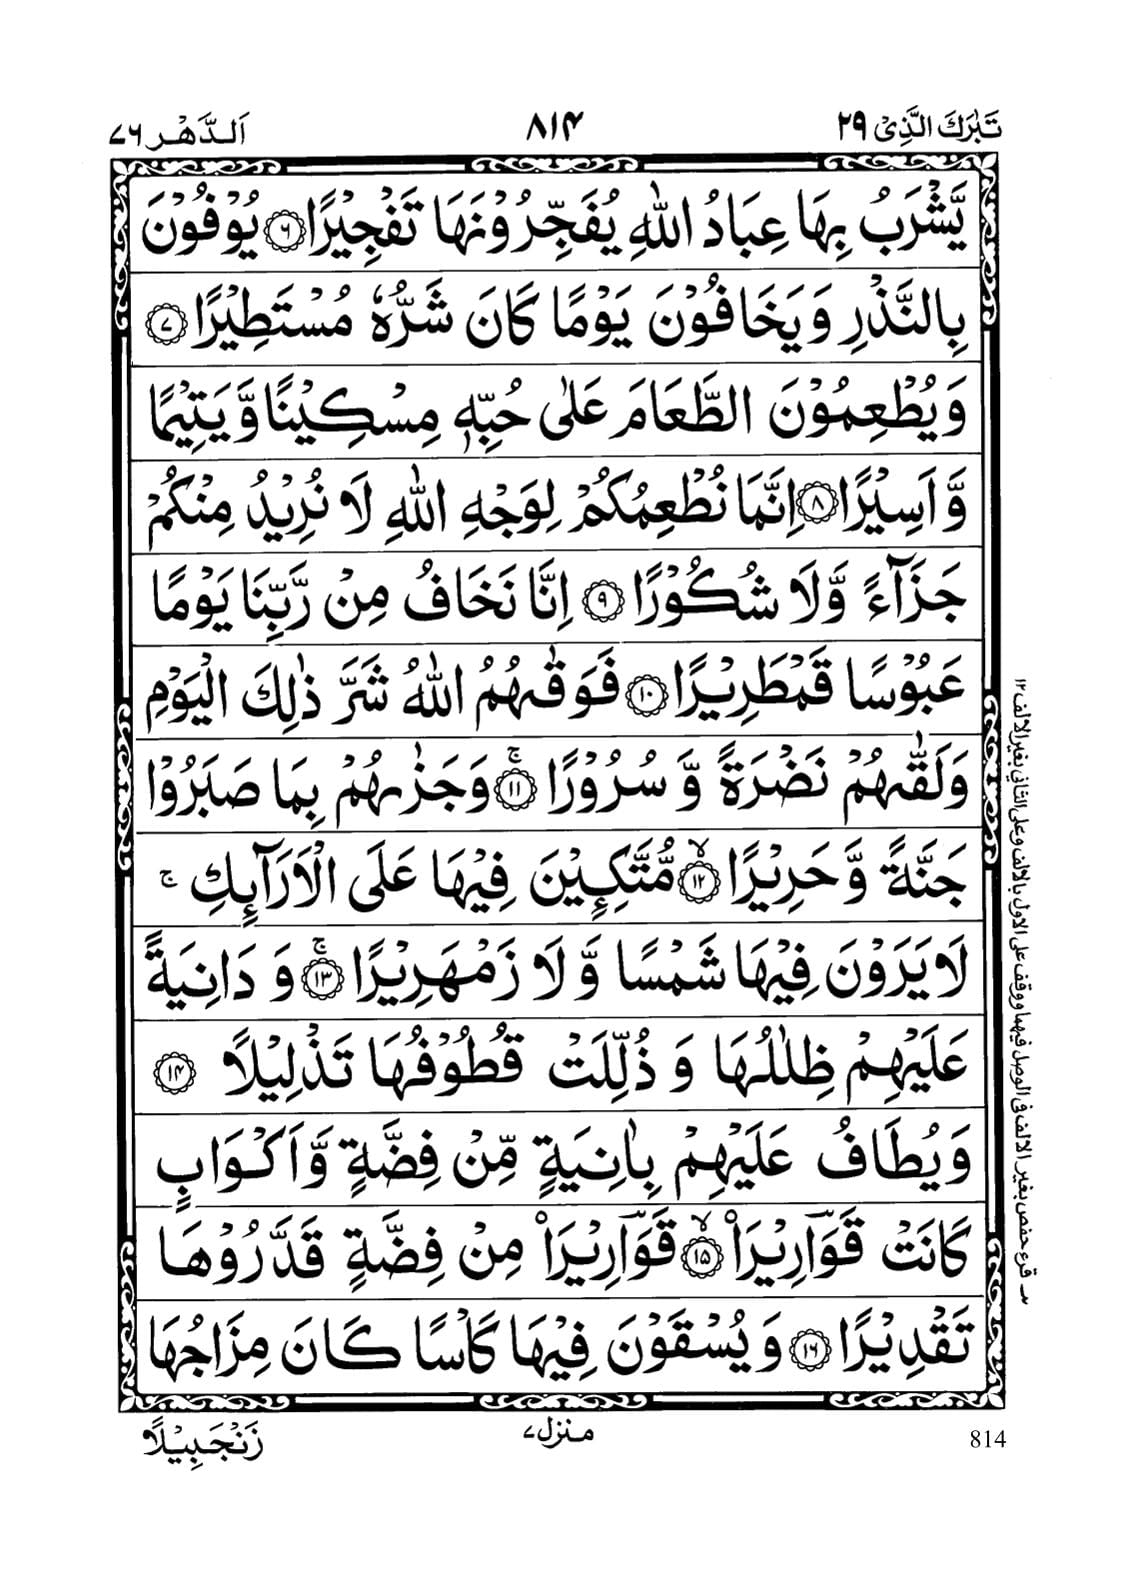 تَبٰرَكَ الَّذِىْ ٢٩
٨١۴
اَلدَّهْر ٧٦
يَّشْرَبُ بِهَا عِبَادُ اللّٰهِ يُفَجِّرُوْنَهَا تَفْجِيْرًا ۶ يُوْفُوْنَ
بِالنَّذْرِ وَيَخَافُوْنَ يَوْمًا كَانَ شَرُّهٗ مُسْتَطِيْرًا ٧
وَيُطْعِمُوْنَ الطَّعَامَ عَلٰى حُبِّهٖ مِسْكِيْنًا وَّيَتِيْمًا
وَّاَسِيْرًا ٨ اِنَّمَا نُطْعِمُكُمْ لِوَجْهِ اللّٰهِ لَا نُرِيْدُ مِنْكُمْ
جَزَآءً وَّلَا شُكُوْرًا ٩ اِنَّا نَخَافُ مِنْ رَّبِّنَا يَوْمًا
عَبُوْسًا قَمْطَرِيْرًا ١٠ فَوَقٰىهُمُ اللّٰهُ شَرَّ ذٰلِكَ الْيَوْمِ
وَلَقّٰىهُمْ نَضْرَةً وَّسُرُوْرًا ۚ ١١ وَجَزٰىهُمْ بِمَا صَبَرُوْا
جَنَّةً وَّحَرِيْرًا ۙ ١٢ مُّتَّكِـِٕيْنَ فِيْهَا عَلَى الْاَرَآىِٕكِ ۚ
لَا يَرَوْنَ فِيْهَا شَمْسًا وَّلَا زَمْهَرِيْرًا ۚ ١٣ وَدَانِيَةً
عَلَيْهِمْ ظِلٰلُهَا وَذُلِّلَتْ قُطُوْفُهَا تَذْلِيْلًا ١۴
وَيُطَافُ عَلَيْهِمْ بِاٰنِيَةٍ مِّنْ فِضَّةٍ وَّاَكْوَابٍ
كَانَتْ قَوَارِيْرَا۟ ۙ ١۵ قَوَارِيْرَا۟ مِنْ فِضَّةٍ قَدَّرُوْهَا
تَقْدِيْرًا ١۶ وَيُسْقَوْنَ فِيْهَا كَاْسًا كَانَ مِزَاجُهَا
قرء حفص بغير الالف فى الوصل فيهما ووقف على الاول بالالف وعلى الثانى بغير الالف ١٢
زَنْجَبِيْلًا
منزل ٧
814